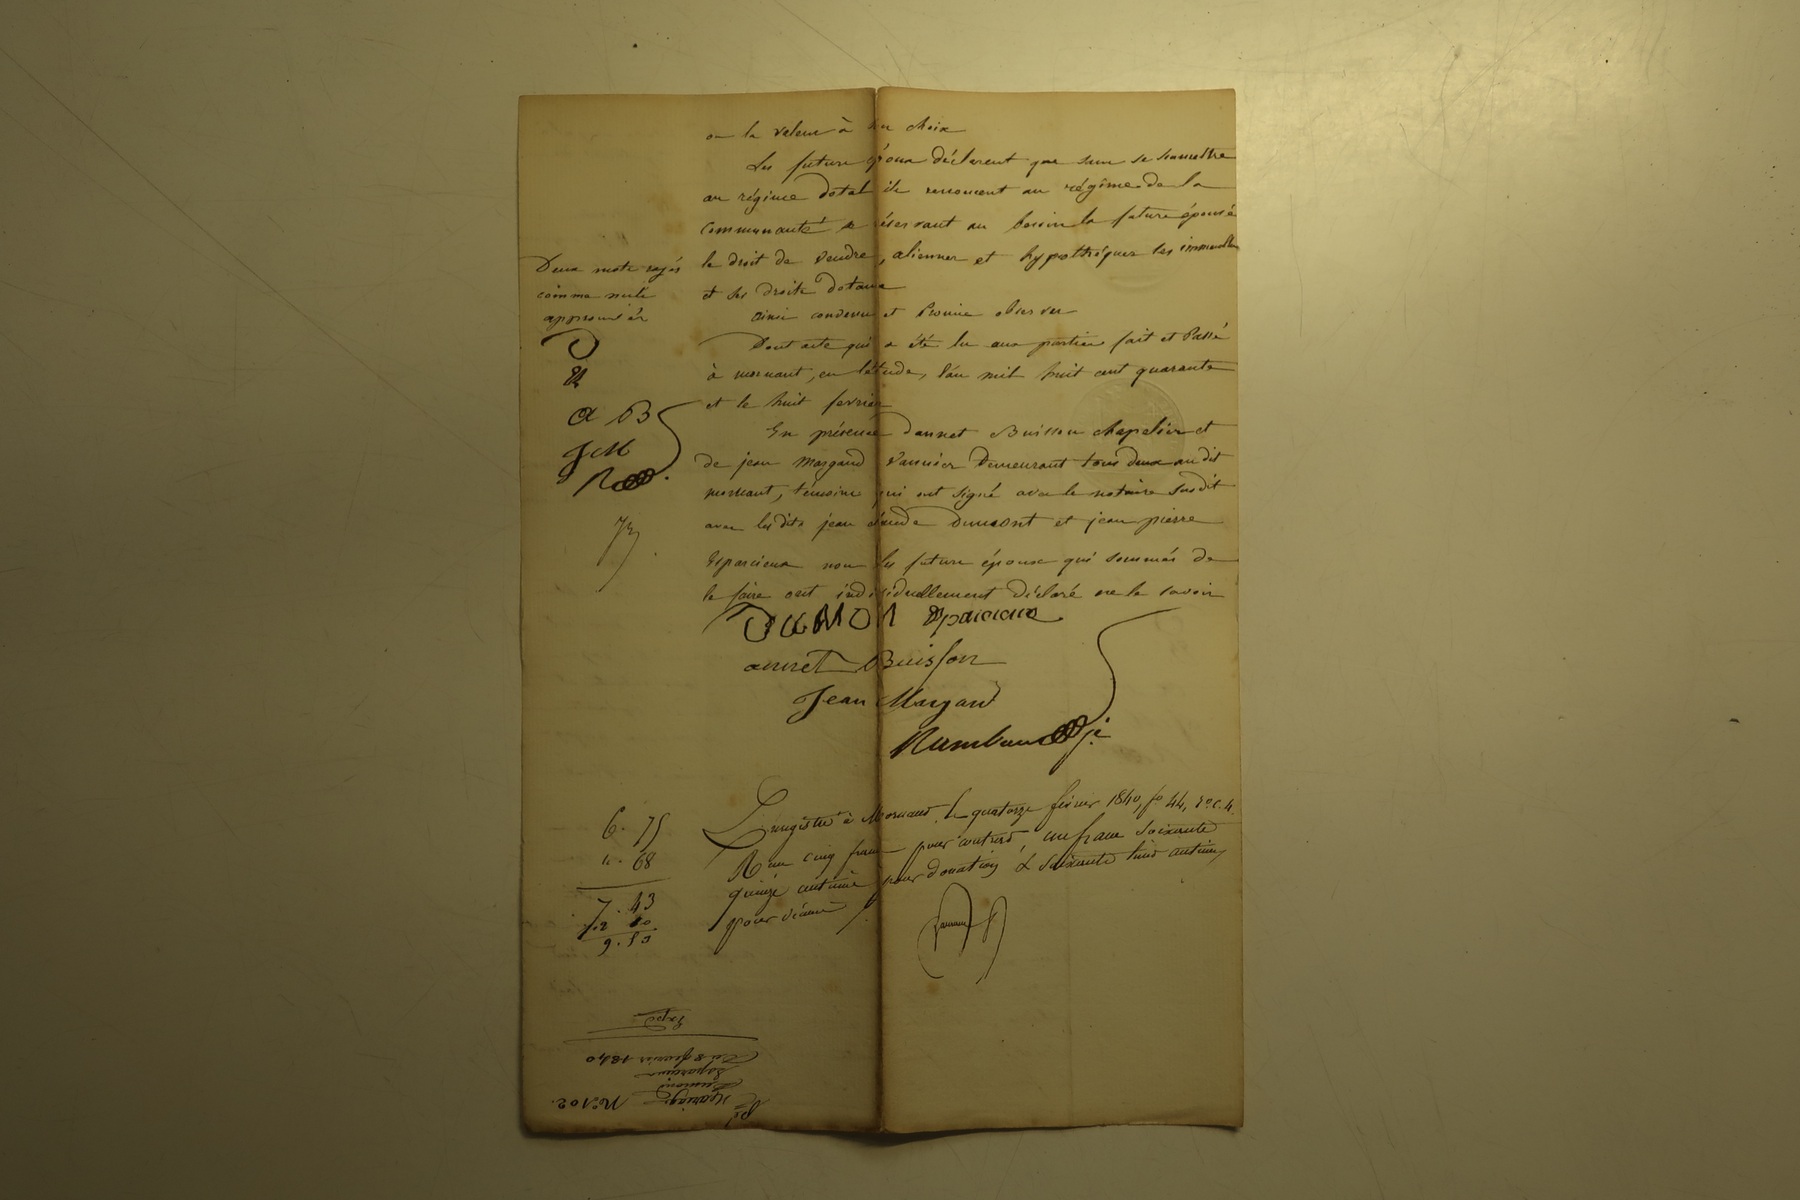 ou la valeur à son choix
Les futurs époux déclarent que sans se soumettre
au régime dotal ils renoncent au régime de la
communauté se réservant au besoin la future épouse
le droit de vendre, aliéner et hypothéquer ses immeubles
et ses droits dotaux
ainsi convenu et promis observer
Dont acte qui a été lu aux parties fait et passé
à mornant, en l'étude, l'an mil huit cent quarante
et le huit fevrier
En présence d'annet Buisson chapelier et
de jean Margand vannier demeurant tous deux au dit
mornant, témoins qui ont signé avec le notaire susdit
avec les dits jean claude Dumont et jean pierre
Esparcieux non les futurs époux qui sommés de
le faire ont individuellement déclaré ne le savoir
Deux mots rayés
comme nuls
approuvés
D
E
a B
J M
R
DUMON Eparcieux
annet Buisson
Jean Margand
Rambaud
Enregistré à Mornant le quatorze février 1840, fo 44, ro c. 4.
R cinq francs pour contrat, un franc soixante
quinze centimes pour donation & soixante huit centimes
pour décime
6. 75
". 68
7. 43
9. 50
No. 102.
Mariage
Dumont
Esparcieux
Du 8 fevrier 1840
Expé